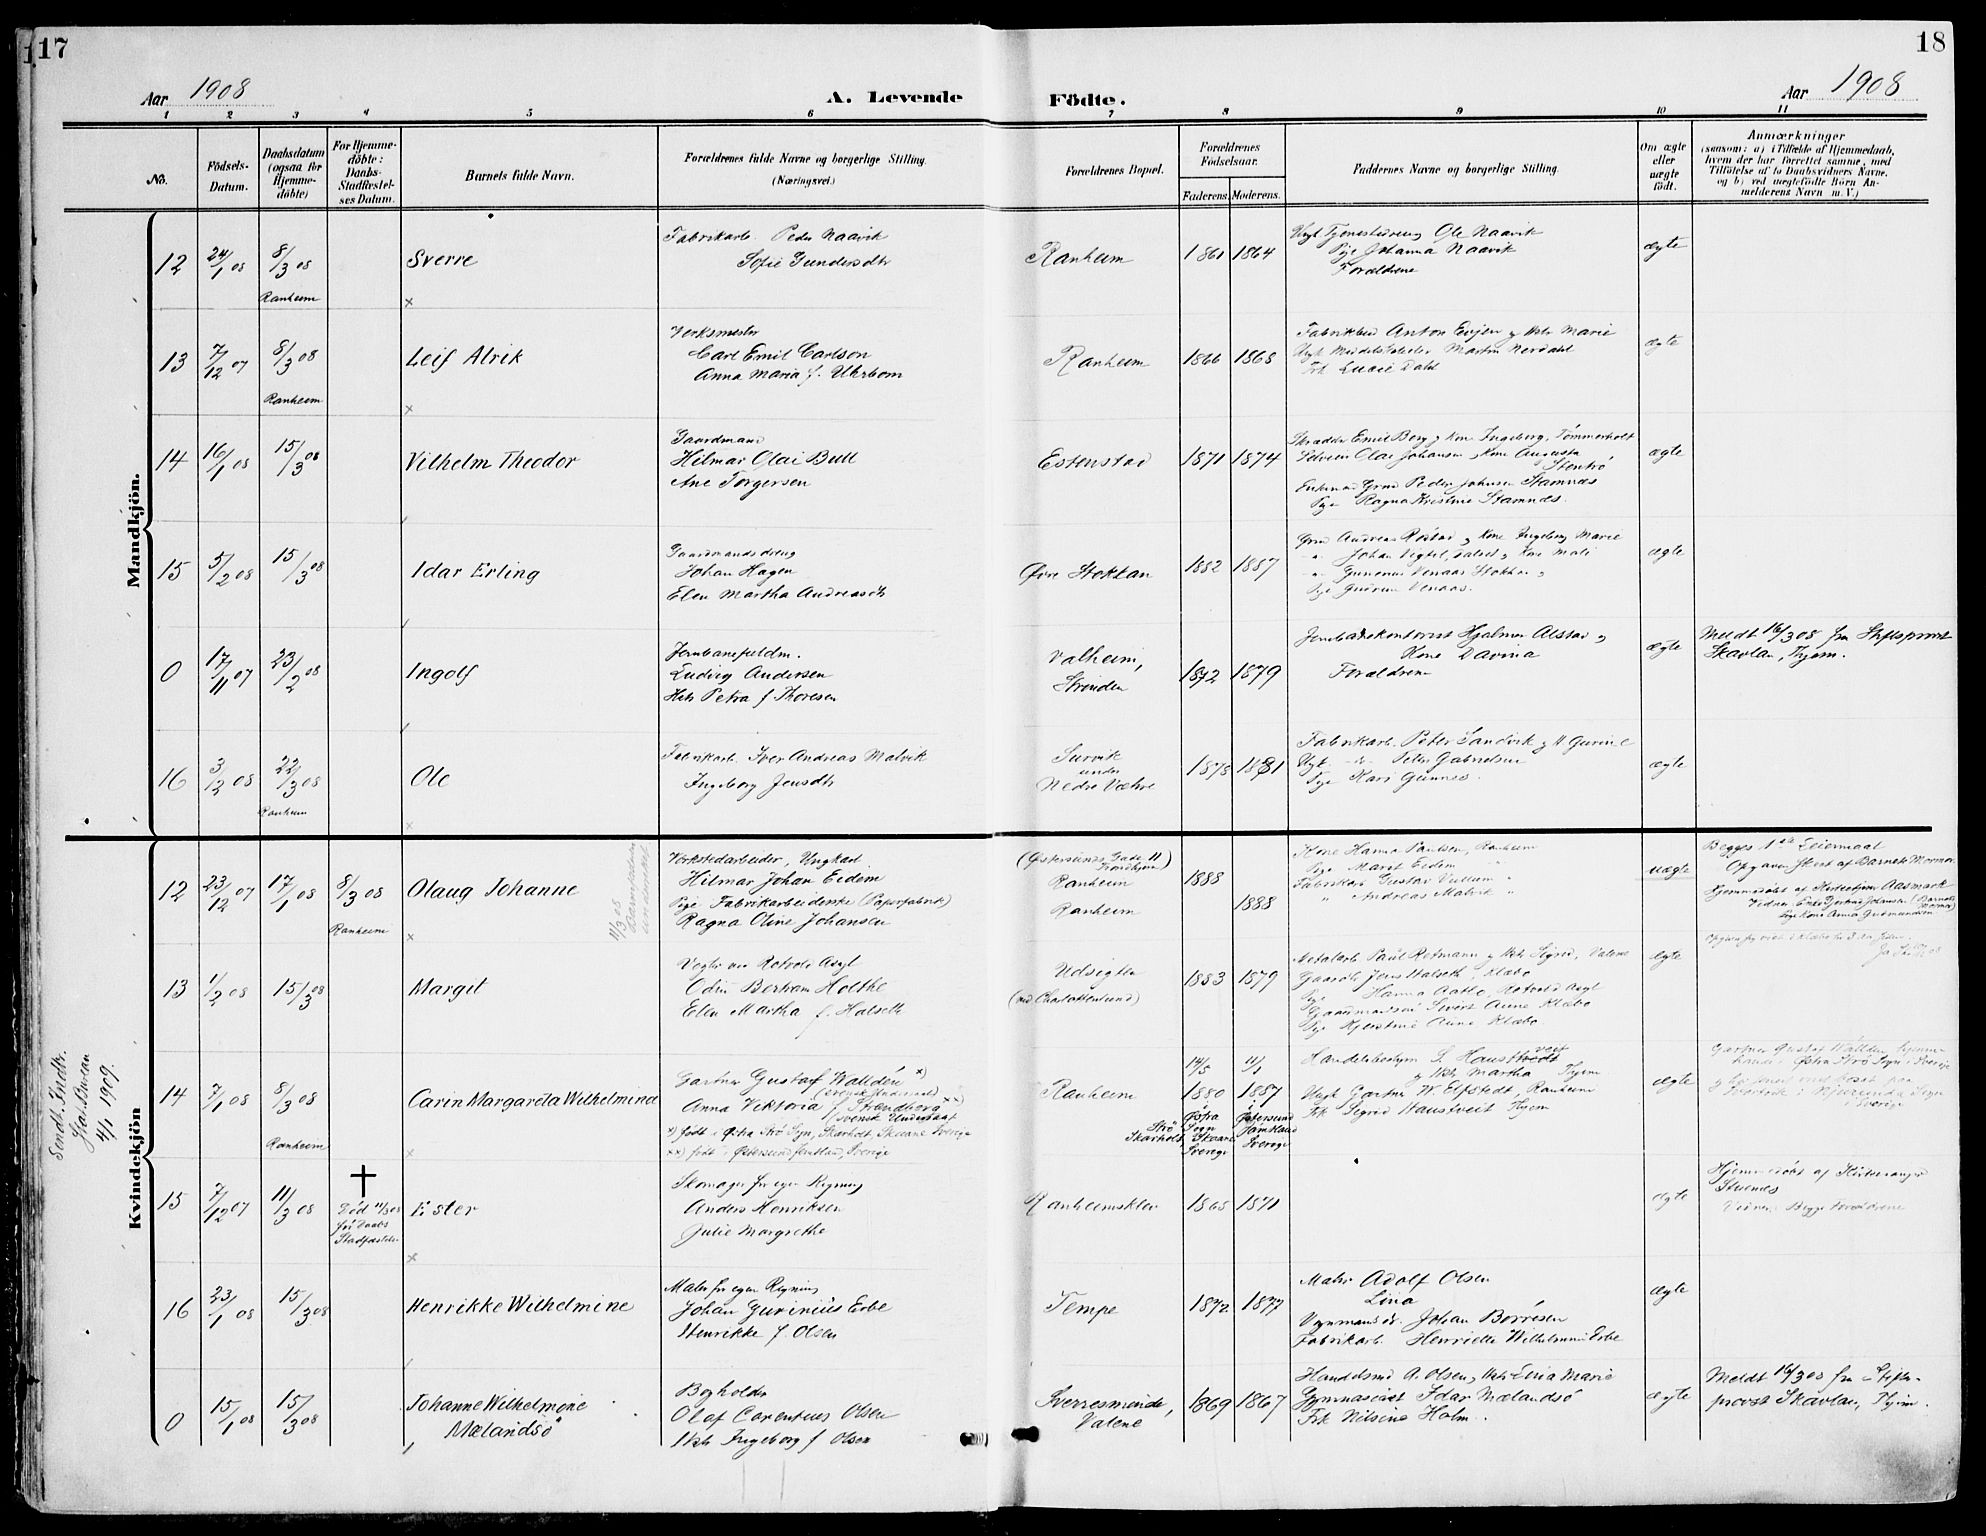 17
18
Aar 1908
A. Levende
Födte.
Aar 1908
1 2 3 4 5 6 7 8 9 10 11
No.
Födsels-
Datum.
Daabsdatum
(ogsaa for
Hjemme-
döbte)
For Hjemme-
döbte:
Daabs-
Stadfæstel-
ses Datum.
Barnets fulde Navn.
Forældrenes fulde Navne og borgerlige Stilling.
(Næringsvei.)
Forældrenes Bopæl.
Forældrenes
Födselsaar.
Faderens. Moderens.
Faddernes Navne og borgerlige Stilling.
Om ægte
eller
uægte
födt.
Anmærkninger
(saasom: a) i Tilfælde af Hjemmedaab,
hvem der har forrettet samme, med
Tilföielse af to Daabsvidners Navne,
og b) ved uægtefödte Börn An-
melderens Navn m. V.)
Mandkjön.
12 24/1 08 8/3 08 Ranheim
Sverre
Fabrikarb. Peder Naavik
Sofie Gundersdtr
Ranheim 1861 1864
Ungk. Tjenestedreng Ole Naavik
Pige Johanna Naavik
Forældrene
ægte
13 7/12 07 8/3 08 Ranheim
Leif Alrik
Verksmester
Carl Emil Carlson
Anna Maria f. Uhrbom
Ranheim 1866 1868
Anton Evjen og Hstr Marie
Martin Nerdahl
Frk Lucie Dahl
ægte
14 16/1 08 15/3 08
Vilhelm Theodor
Gaardmand
Hilmar Olai Bull
Ane Torgersen
Estenstad 1871 1874
Skrædder Emil Berg og Kone Ingeborg, Tömmerholt
Olai Johansen og Kone Augusta
Stentrö
Enkemand Grmd Peder Johnsen Stamnæs
Pige Ragna Kristine Stamnæs.
ægte
15 5/2 08 15/3 08
Idar Erling
Gaardmandsdreng
Johan Hagen
Elen Martha Andreasdtr
Øvre Stokkan 1882 1887
Grmd Andreas Röstad og Kone Ingeborg Marie
Johan Vigtel, Dalset og Kone Mali
Gunerius Venaas Stokkan og
Pige Gudrun Venaas.
ægte
0 17/11 07 23/2 08
Ingolf
Jernbanefuldm.
Ludvig Andersen
Hstr Petra f Thoresen
Valheim,
Strinden 1872 1879
Jernbanekontorist Hjalmar Alstad og
Kone Davina
Forældrene
ægte
Meldt 16/3 08 fra Stiftsprovst
Skavlan, Thjem.
16 3/12 08 22/3 08 Ranheim
Ole
Fabrikarb. Iver Andreas Malvik
Ingeborg Jensdtr
Survik
under
Nedre Væhre 1878 1881
Fabrikarb. Peter Sandvik og H Gurine
Ungk. Peter Gabrielsen
Pige Kari Gunnes.
ægte
Kvindekjön
Sendt. Indtr.
Stat. Bureau
4/1 1909.
12 23/12 07 17/1 08 8/3 08 Ranheim
Olaug Johanne
11/3 08
Verkstedarbeider, Ungkarl
Hilmar Johan Eidem
Pige Fabrikarbeiderske (Papirfabrik)
Ragna Oline Johansen
(Østersunds Gade 11
Trondhjem)
Ranheim
Ranheim
1888
1888
Kone Hanna Paulsen, Ranheim
Pige Marit Eidem
Fabrikarb Gustav Vullum
Andreas Malvik
uægte
Begges 1ste Leiermaal
Opgaven skrevet af Barnets Mormor
Hjemmedöbt af Aasmark
13 1/2 08 15/3 08
Margit
Vogter ved Rotvold Asyl
Odin Bertram Holthe
Ellen Martha f. Halseth
Udsigten
(ved Charlottenlund) 1883 1879
Metalarb Paul Rotmann og Hstr Sigrid, Valene
Gaardbr Jens Halseth, Klæbo
Hanna Aalbo, Rotvold Asyl
Gaardmandssön Sivert Aune Klæbo
Pige Kjerstine Aune Klæbo.
ægte
14 7/1 08 8/3 08 Ranheim
Carin Margareta Wilhelmina
Gartner Gustaf Walldén x)
(svensk Undersaat)
Anna Viktoria f. Strandberg xx)
svensk Undersaat
x) födt i Østra Strö Sogn, Skarholt, Skaane Sverige
xx) födt i Østersund Jemtland, Sverige
Ranheim
14/5 1880
11/1 1887
Østra
Strö Sogn
Skarholt, Skaane
Sverige
Østersund
Jämtland
Sverige
Handelsbestyrer S. Haustveit
og Hstr Martha Thjem
Ungk Gartner W. Elfstedt, Ranheim
Frk Sigrid Haustveit Thjem
ægte
15 7/12 07 11/3 08
Död 11/3 08
før Daabs
Stadfæstelse
Ester
Skomager for egen Regning
Anders Henriksen
Julie Margrethe
Ranheimsklev 1865 1871
ægte
Hjemmedöbt af Kirkesanger
Stuenes
Vidner: Begge Forældrene
16 23/1 08 15/3 08
Henrikke Wilhelmine
Maler for egen Regning
Johan Gurinius Erbe
Henrikke f. Olsen
Tempe 1872 1877
Maler Adolf Olsen
Lina
Johan Borresen
Fabrikarb. Henriette Wilhelmine Erbe
ægte
0 15/1 08 15/3 08
Johanne Wilhelmine
Mælandsö
Bogholder
Olaf Carentius Olsen
Hstr Ingeborg f Olsen
Sverresminde,
Valene 1869 1867
Handelsmd A. Olsen, Hstr Lina Marie
Gymnasiast Idar Mælandsö
Frk Nilsine Holm.
ægte
Meldt 16/3 08 fra Stifts-
provst Skavlan, Thjem.